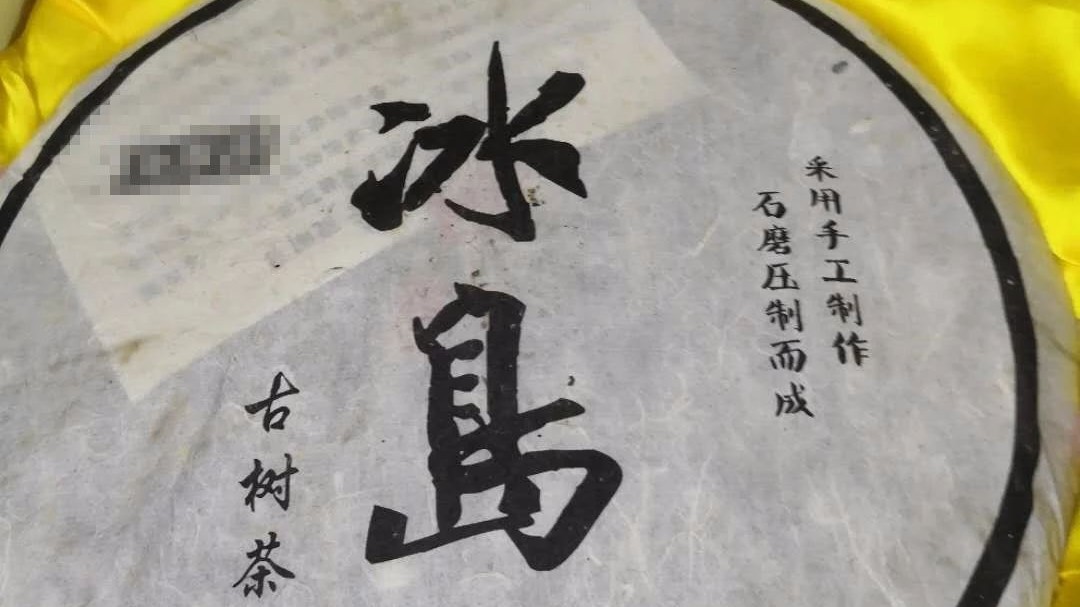 冰島
采用手工制作
石磨压制而成
古树茶